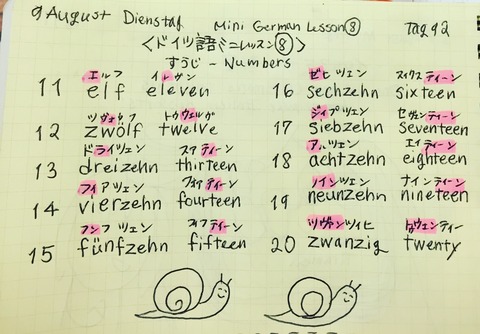 9 August Dienstag Mini German Lesson⑧ Tag 92
〈ドイツ語ミニレッスン⑧〉
すうじ - Numbers
エルフ イレヴン
11 elf eleven
ゼヒツェン スィクスティーン
16 sechzehn sixteen
ツヴォゥルフ トゥウェルヴ
12 zwölf twelve
ジィプツェン セヴンティーン
17 siebzehn seventeen
ドライツェン スアティーン
13 dreizehn thirteen
アハツェン エイティーン
18 achtzehn eighteen
フィアツェン フォアティーン
14 vierzehn fourteen
ノインツェン ナインティーン
19 neunzehn nineteen
フンフツェン フィフティーン
15 fünfzehn fifteen
ツヴァンツィヒ トゥウェンティー
20 zwanzig twenty